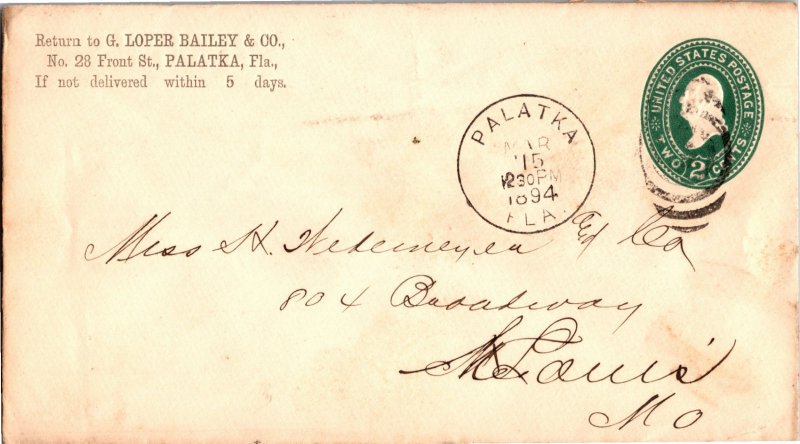 Return to G. LOPER BAILEY & CO.,
No. 28 Front St., PALATKA, Fla.,
If not delivered within 5 days.
UNITED STATES POSTAGE
TWO 2 CENTS
PALATKA
MAR
15
1894
FLA.
Miss H. Wedemeyer and Co
804 Broadway
St Louis
Mo